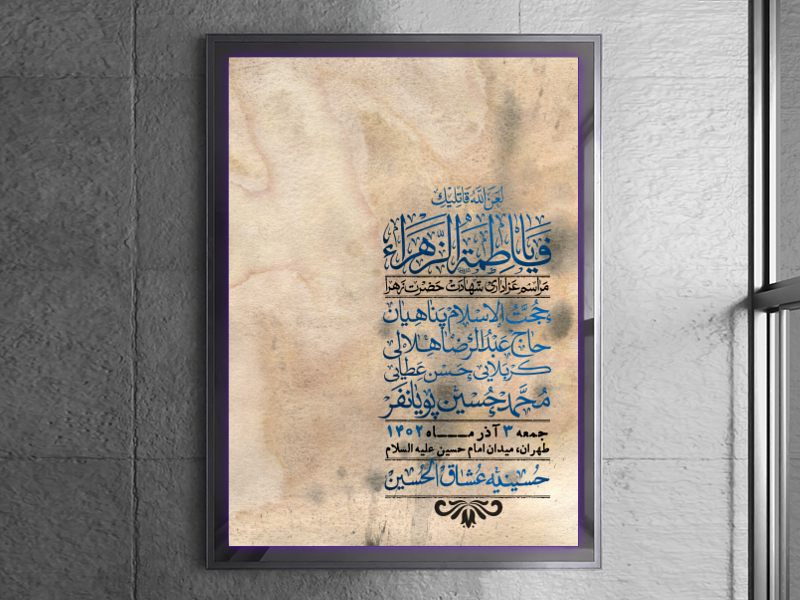 لَعَنَ اللّٰهُ قاتِلیكِ
یا فاطِمَةَ الزَّهراء
مَراسِم عَزاداری شَهادَت حَضرَت زَهرا
حُجَّتُ الاِسلام پَناهیان
حاج عَبدُالرِّضا هِلالی
کَربَلایی حَسَن عَطایی
مُحَمَّدحُسِین پویانفَر
جمعه ۳ آذر مـــاه ۱۴۰۲
طهران، میدان امام حسین علیه السلام
حُسینیّه عُشّاقُ الحُسین